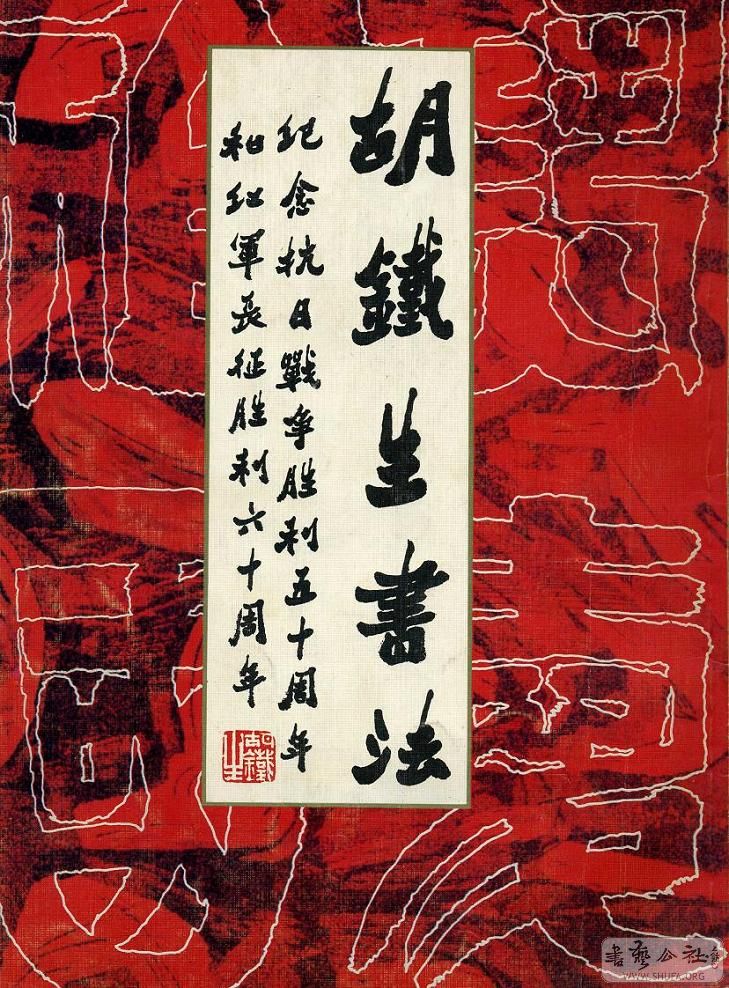 胡鐵生書法
纪念抗日戰争胜利五十周年
和红軍長征胜利六十周年
胡鐵生
書藝公社
WWW.SHUFA.ORG